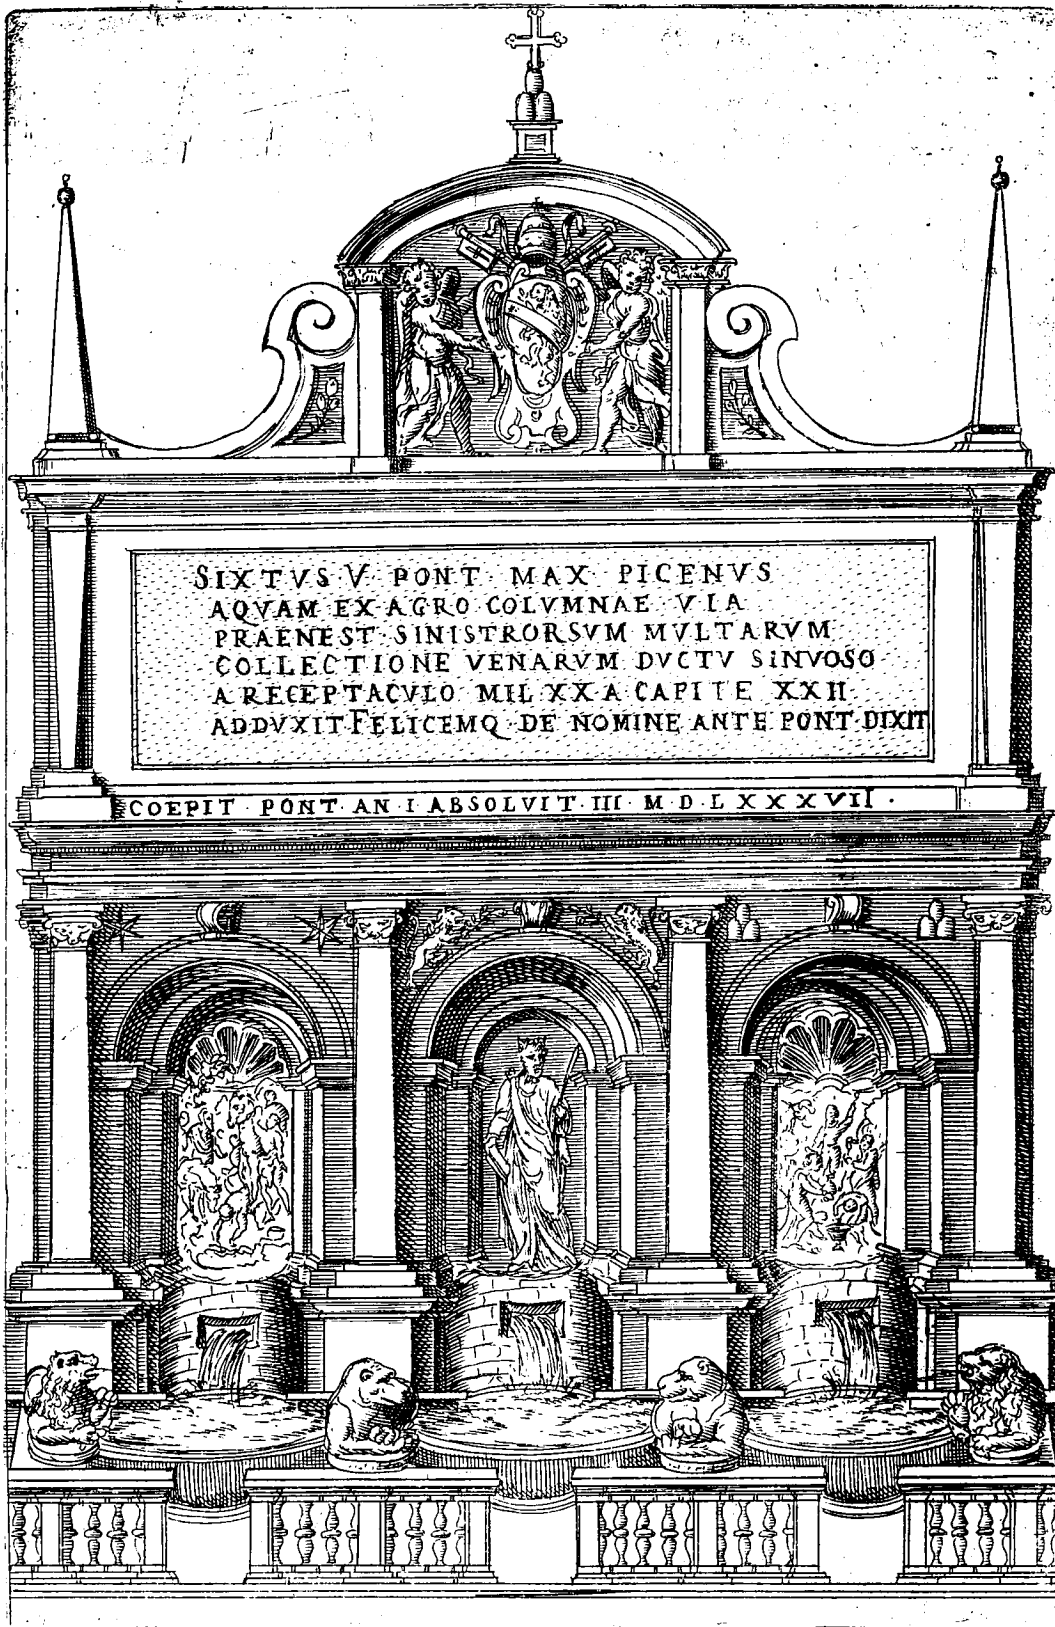 SIXTVS V · PONT · MAX · PICENVS
AQVAM EX AGRO COLVMNAE · VIA
PRAENEST · SINISTRORSVM MVLTARVM
COLLECTIONE VENARVM DVCTV SINVOSO
A RECEPTACVLO MIL XX A CAPITE XXII
ADDVXIT FELICEMQ · DE NOMINE ANTE PONT · DIXIT
COEPIT · PONT · AN · I ABSOLVIT · III · M D · L X X X VII ·